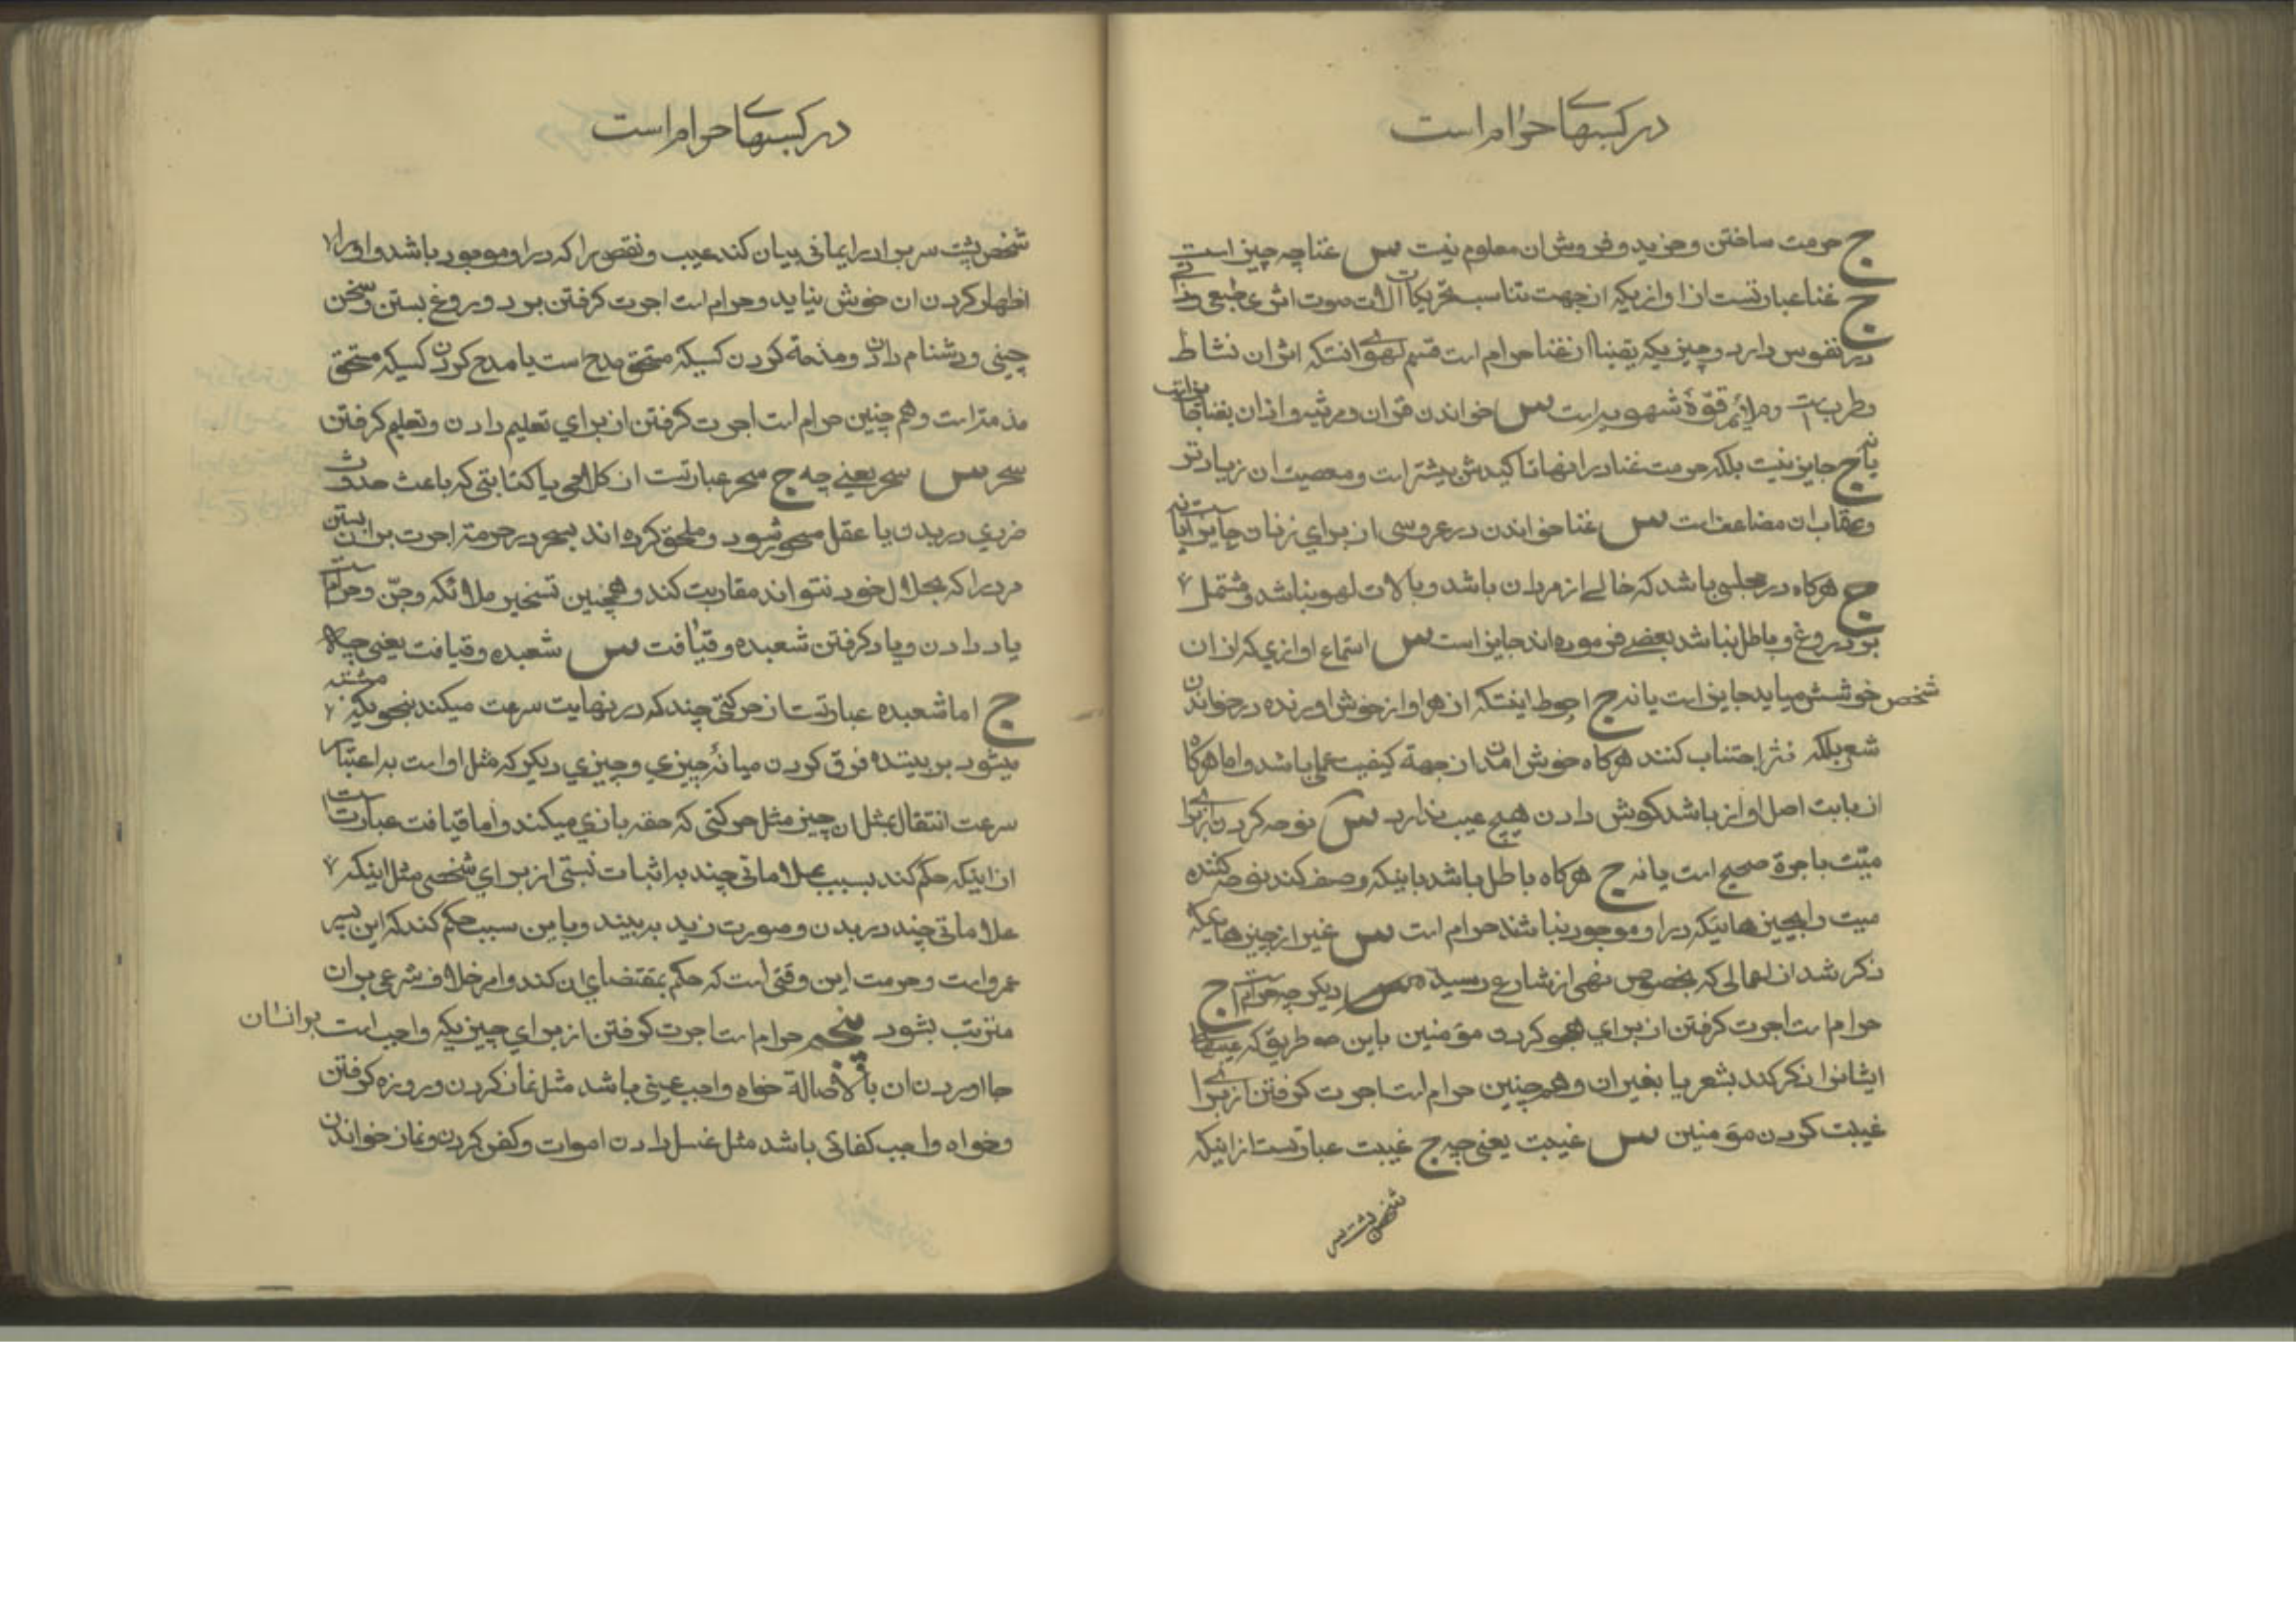 در کسبهای حرام است
ج حرمت ساختن و خرید و فروش ان معلوم نیست س غنا چه چیز است
ج غنا عبارتست از اوازیکه از جهت تناسب تحریکات الات صوت اثری طبعی و ذاتی
در نفوس دارد و چیزیکه یقینا از غنا حرام است قسم لهوی انستکه اثر ان نشاط
و طربست و ملائم قوّهٔ شهویه است س خواندن قران و مرثیه و اذان بغنا جایز است
یا نه ج جایز نیست بلکه حرمت غنا در اینها تاکیدش بیشتر است و معصیت ان زیادتر
و عقاب ان مضاعف است س غنا خواندن در عروسی از برای زنان جایز است یا نه
ج هرکاه در مجلسی باشد که خالی از مردان باشد و بالات لهو نباشد و مشتمل
بر دروغ و باطل نباشد بعضی فرموده اند جایز است س استماع اوازی که از ان
شخص خوشش میاید جایز است یا نه ج احوط اینستکه از هر اواز خوش اورنده در خواندن
شعر بلکه نثر اجتناب کنند هرکاه خوش امدن از جهة کیفیت عملی باشد و اما هرکاه
از بابت اصل اواز باشد کوش دادن هیچ عیب ندارد س نوحه کردن از برای
میّت باجرة صحیح است یا نه ج هرکاه باطل باشد باینکه وصف کند نوحه کننده
میت را بچیزهائیکه در او موجود نباشند حرام است س غیر از چیزهائیکه
ذکر شد از اعمالی که بخصوص نهی از شارع رسیده س دیکر چه حرام است ج
حرام است اجرت کرفتن از برای هجو کردن مؤمنین باین طریق که عیبهای
ایشانرا ذکر کند بشعر یا بغیر ان و همچنین حرام است اجرت کرفتن از برای
غیبت کردن مؤمنین س غیبت یعنی چه ج غیبت عبارتست از اینکه
شخص پشت سر
در کسبهای حرام است
شخص پشت سر برادر ایمانی بیان کند عیب و نقصی را که در او موجود باشد و او را
اظهار کردن ان خوش نیاید و حرام است اجرت کرفتن بر دروغ بستن و سخن
چینی و دشنام دادن و مذمة کردن کسیکه مستحق مدح است یا مدح کردن کسیکه مستحق
مذمتر است و هم چنین حرام است اجرت کرفتن از برای تعلیم دادن و تعلیم کرفتن
سحر س سحر یعنی چه ج سحر عبارتست از کلامی یا کتابتی که باعث حدوث
ضرری در بدن یا عقل مسحور شود و ملحق کرده اند بسحر در حرمت اجرت بر ان بستن
مرد را که بحلال خود نتواند مقاربت کند و همچنین تسخیر ملائکه و جنّ و حرام است
یاد دادن و یاد کرفتن شعبده و قیافت س شعبده و قیافت یعنی چه
ج اما شعبده عبارتست از حرکتی چند که در نهایت سرعت میکند بنحویکه مشتبه
میشود بر بیننده فرق کردن میانهٔ چیزی و چیزی دیکر که مثل او است به اعتبار
سرعت انتقال بمثل ان چیز مثل حرکتی که حقه بازی میکند و اما قیافت عبارتست
از اینکه حکم کند بسبب علاماتی چند به اثبات نسبتی از برای شخصی مثل اینکه
علاماتی چند در بدن و صورت زید به بیند و باین سبب حکم کند که این پسر
عمرو است و حرمت این وقتی است که حکم بمقتضای ان کند و امر خلاف شرعی بر ان
مترتب بشود پنجم حرام است اجرت کرفتن از برای چیزیکه واجب است بر انسان
جا اوردن ان بالاصالة خواه واجب عینی باشد مثل نماز کردن و روزه کرفتن
و خواه واجب کفائی باشد مثل غسل دادن اموات و کفن کردن و نماز خواندن